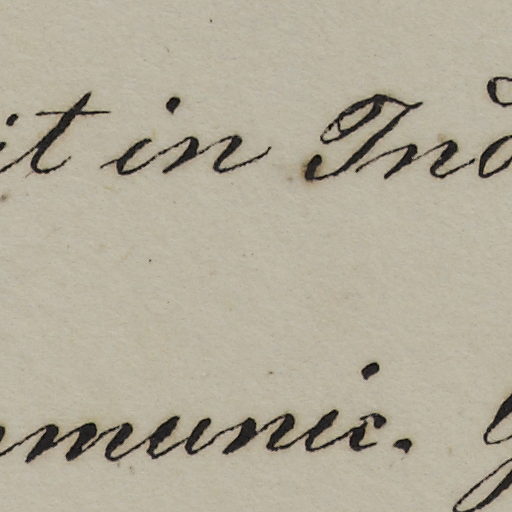 it in Ind
mmunic.